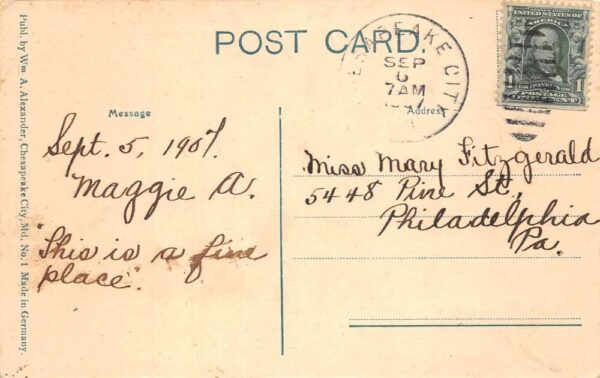 POST CARD.
CHESAPEAKE CITY
SEP
6
7 AM
1907
UNITED STATES OF AMERICA
1
POSTAGE
Message
Address
Sept. 5, 1907.
Maggie A.
"This is a fine
place".
Miss Mary Fitzgerald
5448 Pine St.,
Philadelphia
Pa.
Publ. by Wm. A. Alexander, Chesapeake City, Md. No. 1 Made in Germany.